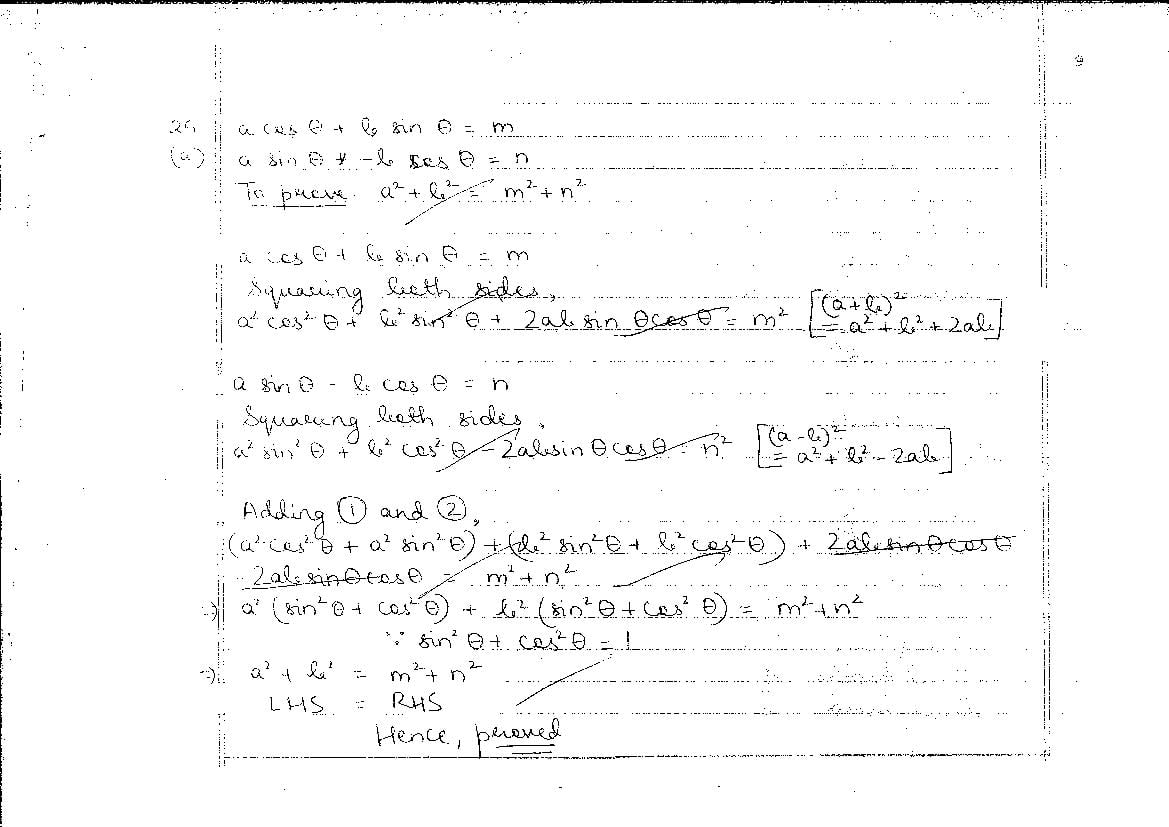 25
(a)
a cos θ + b sin θ = m
a sin θ - b cos θ = n
To prove. a² + b² = m² + n²
a cos θ + b sin θ = m
Squaring both sides,
a² cos² θ + b² sin² θ + 2ab sin θ cos θ = m² [(a+b)² = a² + b² + 2ab]
a sin θ - b cos θ = n
Squaring both sides,
a² sin² θ + b² cos² θ - 2ab sin θ cos θ = n² [(a-b)² = a² + b² - 2ab]
Adding ① and ②,
(a² cos² θ + a² sin² θ) + (b² sin² θ + b² cos² θ) + 2ab sin θ cos θ
- 2ab sin θ cos θ = m² + n²
⇒ a² (sin² θ + cos² θ) + b² (sin² θ + cos² θ) = m² + n²
∵ sin² θ + cos² θ = 1
⇒ a² + b² = m² + n²
LHS = RHS
Hence, proved